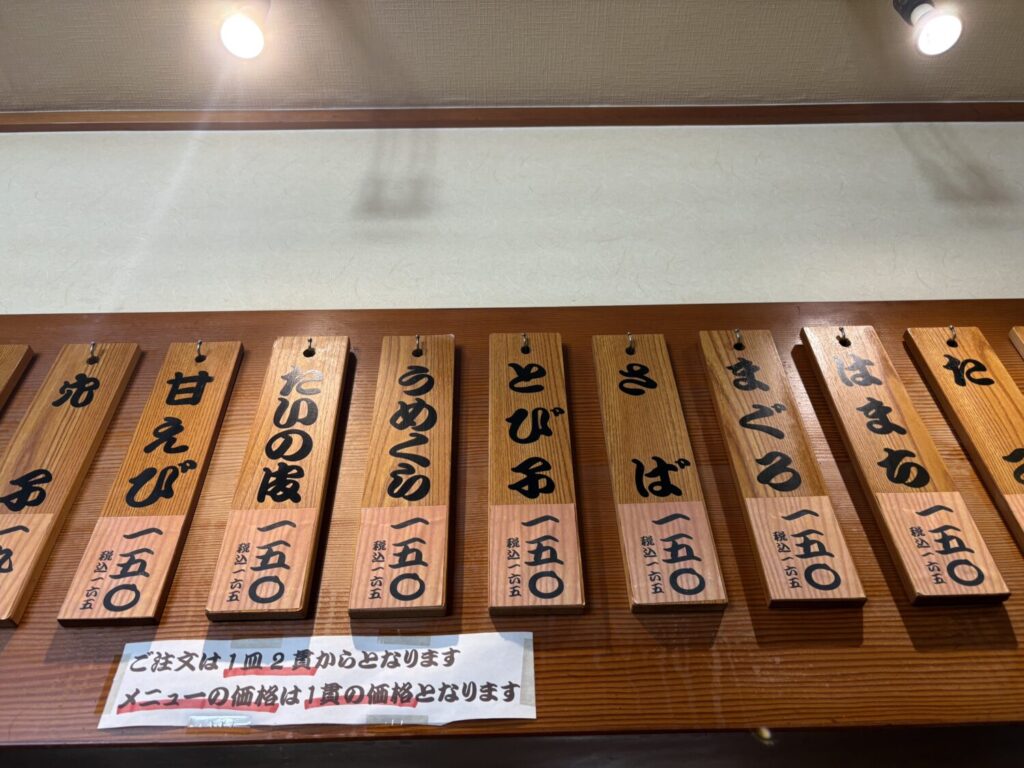 た
はまち
一五〇
税込一六五
まぐろ
一五〇
税込一六五
さば
一五〇
税込一六五
とび子
一五〇
税込一六五
うめくら
一五〇
税込一六五
たいの皮
一五〇
税込一六五
甘えび
一五〇
税込一六五
穴子
ご注文は1皿2貫からとなります
メニューの価格は1貫の価格となります